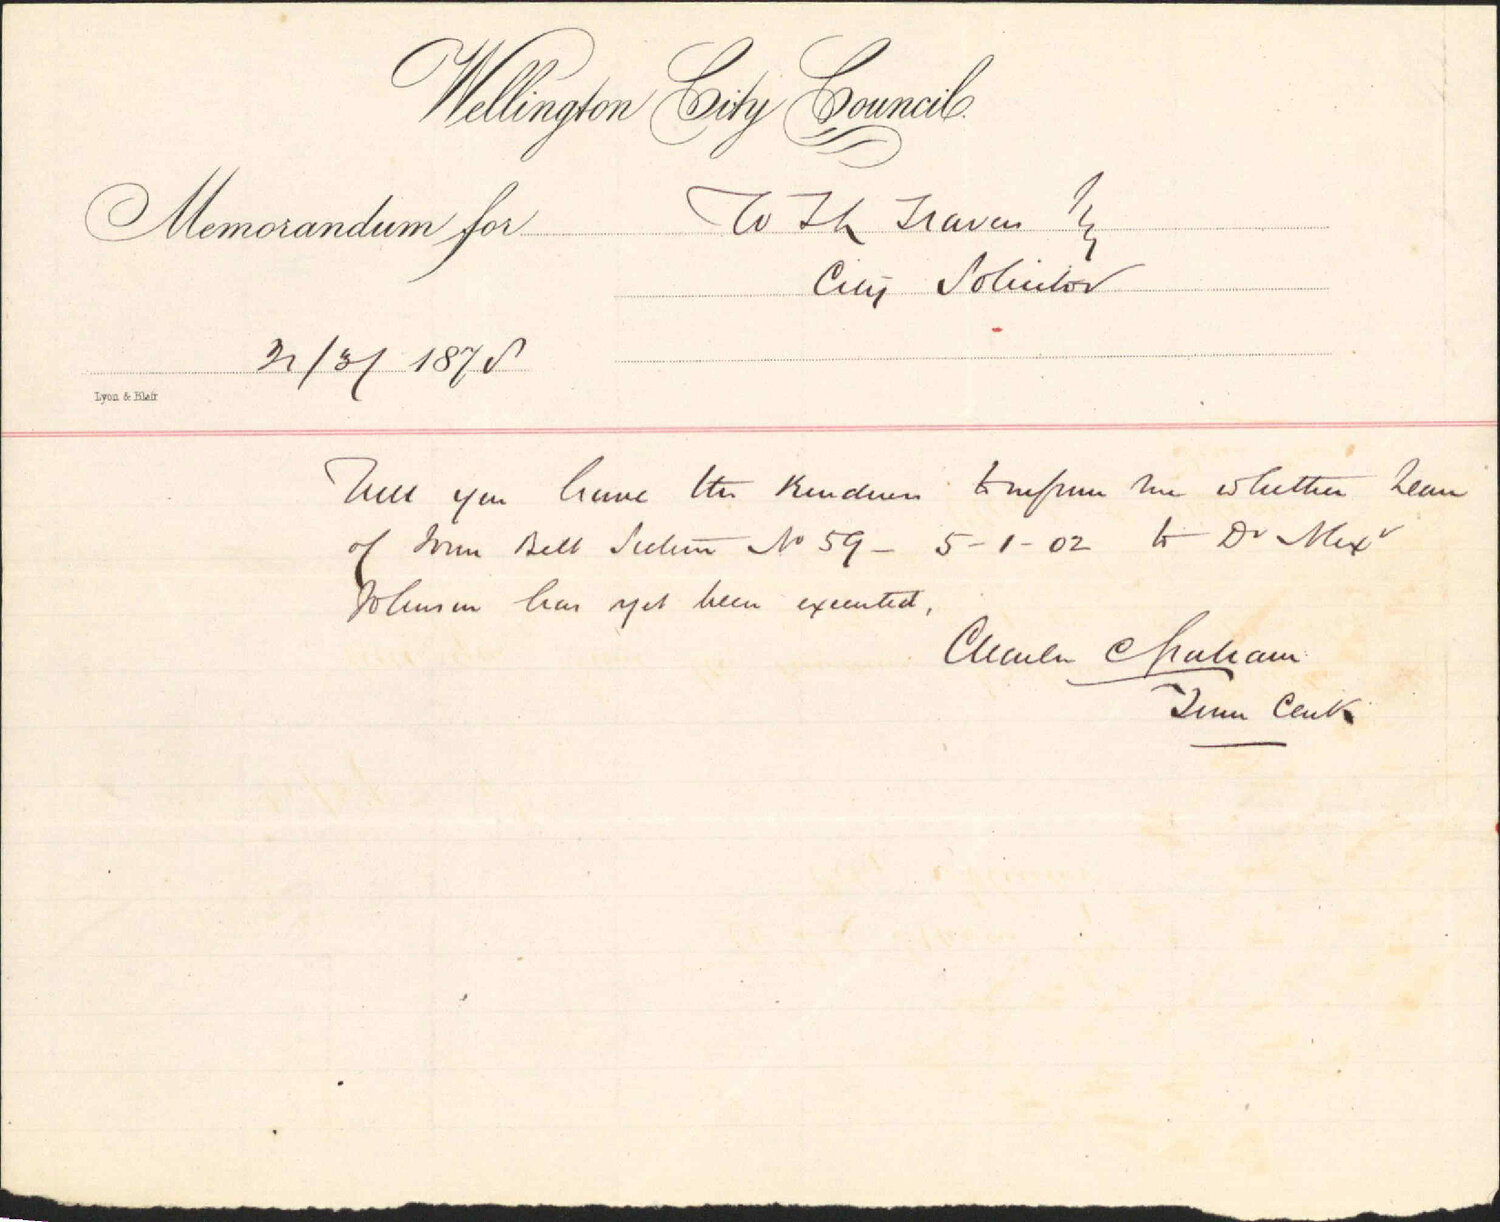 Wellington City Council.
Memorandum for W Th Travers Esq
City Solicitor
21/3/ 1878
Lyon & Blair
Will you have the kindness to inform me whether Lease
of Town Belt Section No 59 - 5-1-02 to Dr Alexr
Johnson has yet been executed.
Charles C Graham
Town Clerk